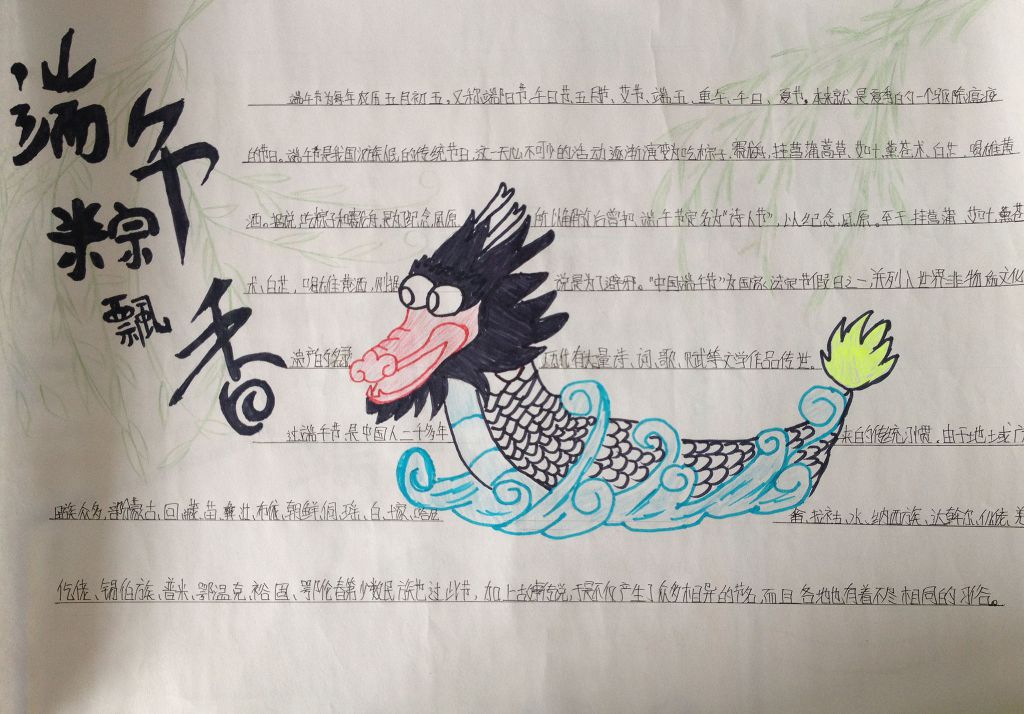 端午
粽飘
香
端午节为每年农历五月初五。又称端阳节、午日节、五月节、艾节、端五、重午、午日、夏节。本来是夏季的一个驱除瘟疫
的节日。端午节是我国汉族人民的传统节日,这一天必不可少的活动逐渐演变为吃粽子、赛龙舟、挂菖蒲蒿草、艾叶、薰苍术、白芷,喝雄黄
酒。据说,吃粽子和赛龙舟,是为纪念屈原 所以解放后曾把端午节定名为“诗人节”,以纪念屈原。至于挂菖蒲、艾叶、薰苍
术、白芷,喝雄黄酒,则据 说是为了避邪。“中国端午节”为国家法定节假日之一,并列入世界非物质文化
遗产的名录 历代有大量诗、词、歌、赋等文学作品传世。
过端午节,是中国人二千多年 来的传统习惯,由于地域广
民族众多,部蒙古、回、藏、苗、彝、壮、布依、朝鲜、侗、瑶、白、土家、哈尼 畲、拉祜、水、纳西族、达斡尔、仫佬、羌
仡佬、锡伯族、普米、鄂温克、裕固、鄂伦春等少数民族也过此节,加上故事传说,于是不仅产生了众多相异的节名,而且各地也有着不尽相同的习俗。